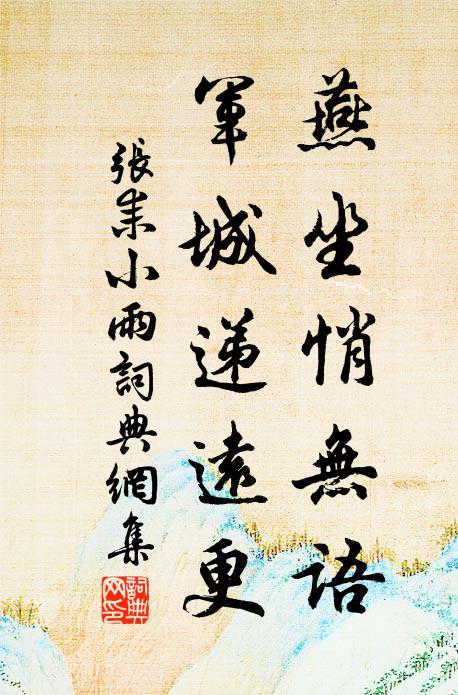 燕坐悄無語
軍城遞遠更
張耒小雨詞典網集
詞典網印